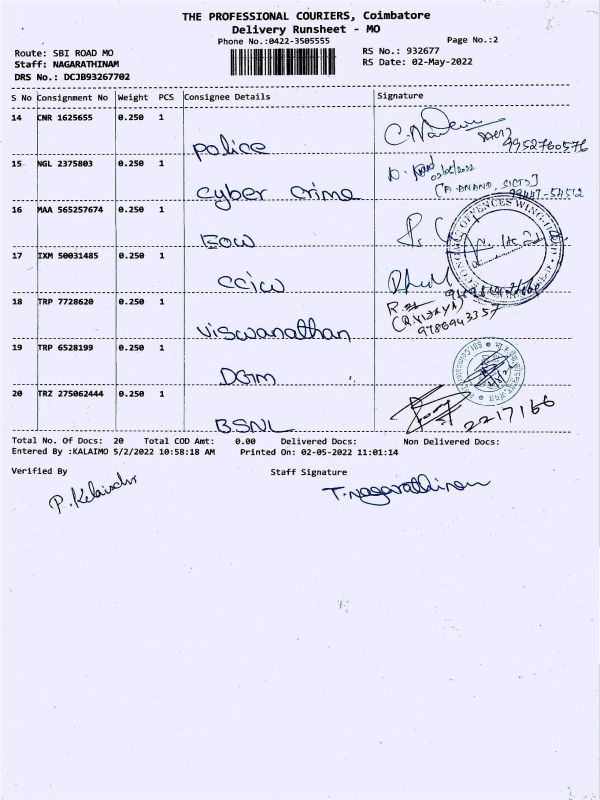 THE PROFESSIONAL COURIERS, Coimbatore
Delivery Runsheet - MO
Phone No.:0422-3505555
Page No.:2
Route: SBI ROAD MO
RS No.: 932677
Staff: NAGARATHINAM
RS Date: 02-May-2022
DRS No.: DCJB93267702
S No Consignment No Weight PCS Consignee Details Signature
14 CNR 1625655 0.250 1 Police
9952760576
15 NGL 2375803 0.250 1 Cyber Crime
02/05/2022
94477-54512
16 MAA 565257674 0.250 1 EOW
OFFENCES WING
17 IXM 50031485 0.250 1 CCIW
18 TRP 7728620 0.250 1 Viswanathan
9786943357
19 TRP 6528199 0.250 1 DGM
20 TRZ 275062444 0.250 1 BSNL
2217166
Total No. Of Docs: 20 Total COD Amt: 0.00 Delivered Docs: Non Delivered Docs:
Entered By :KALAIMO 5/2/2022 10:58:18 AM Printed On: 02-05-2022 11:01:14
Verified By Staff Signature
T. Nagarathinam